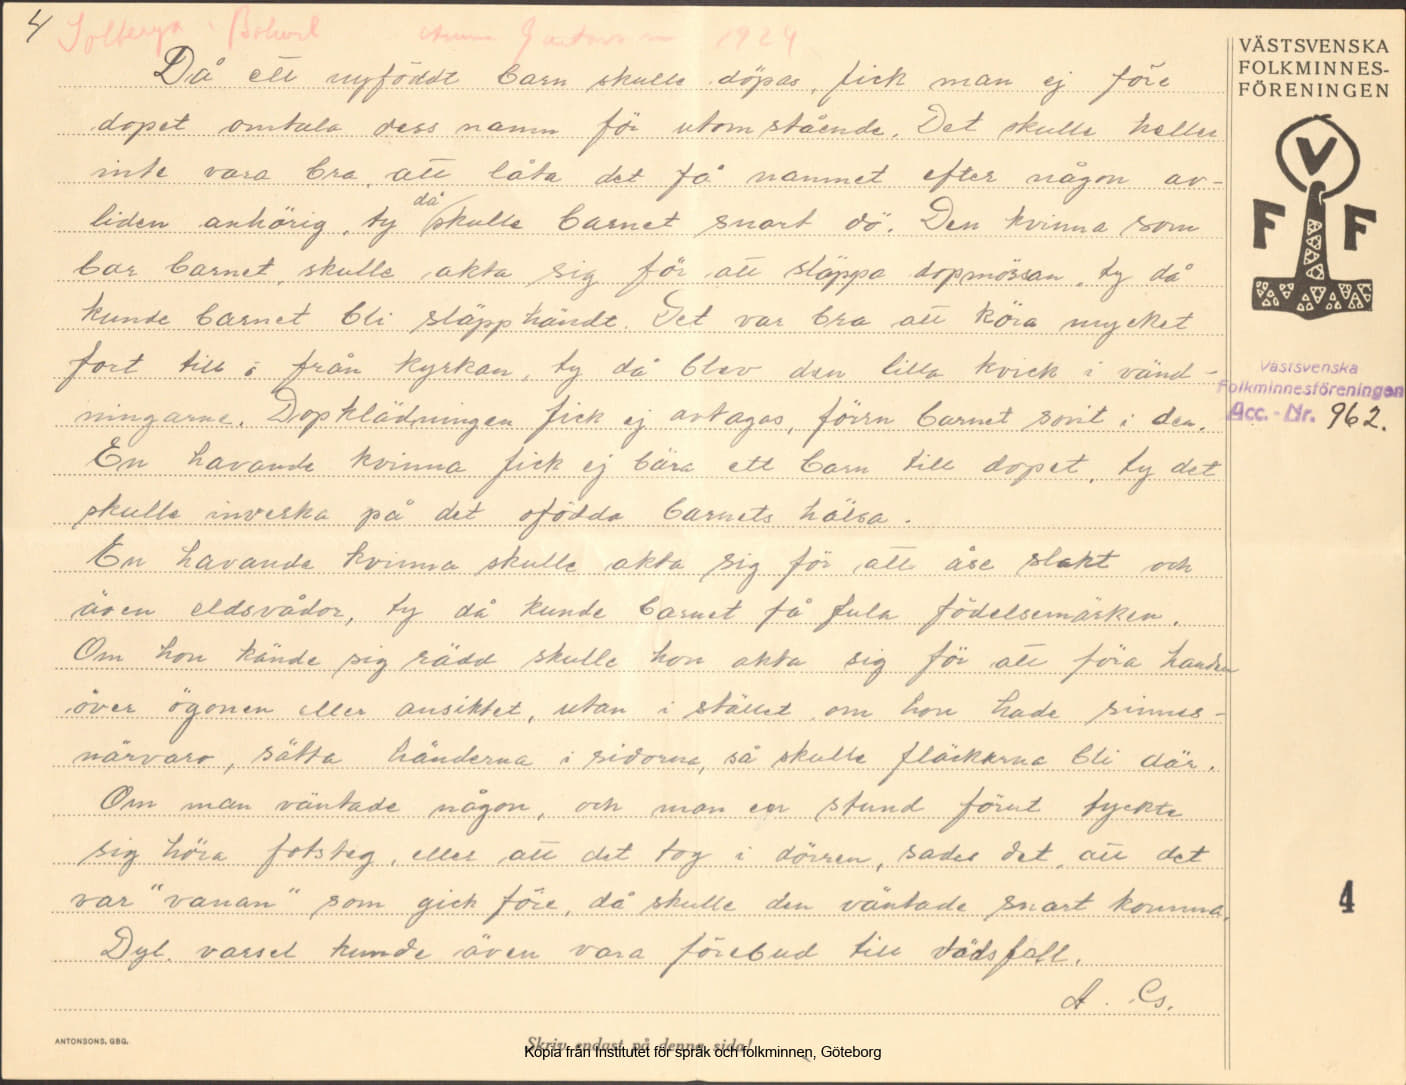 4
Solberga i Bohusl. Anna Gustavsson 1924
Då ett nyföddt barn skulle döpas, fick man ej före
dopet omtala dess namn för utomstående. Det skulle heller
inte vara bra att låta det få namnet efter någon av-
liden anhörig, ty då skulle barnet snart dö. Den kvinna som
bar barnet, skulle akta sig för att släppa dopmössan, ty då
kunde barnet bli släpphändt. Det var bra att köra mycket
fort till o från kyrkan, ty då blev den lilla kvick i vänd-
ningarna. Dopklädningen fick ej avtagas, förrn barnet sovit i den.
En havande kvinna fick ej bära ett barn till dopet, ty det
skulle inverka på det ofödda barnets hälsa.
En havande kvinna skulle akta sig för att åse slakt och
även eldsvådor, ty då kunde barnet få fula födelsemärken.
Om hon kände sig rädd skulle hon akta sig för att föra handen
över ögonen eller ansiktet, utan i stället om hon hade sinnes-
närvaro, sätta händerna i sidorna, så skulle fläckarna bli där.
Om man väntade någon, och man en stund förut tyckte
sig höra fotsteg, eller att det tog i dörren, sades det, att det
var "vanan" som gick före, då skulle den väntade snart komma.
Dyl. varsel kunde även vara förebud till dödsfall.
A. Gs.
VÄSTSVENSKA
FOLKMINNES-
FÖRENINGEN
V
F F
Västsvenska
Folkminnesföreningen
Acc.-Nr. 962.
4
ANTONSONS, GBG.
Skriv endast på denna sida!
Kopia från Institutet för språk och folkminnen, Göteborg